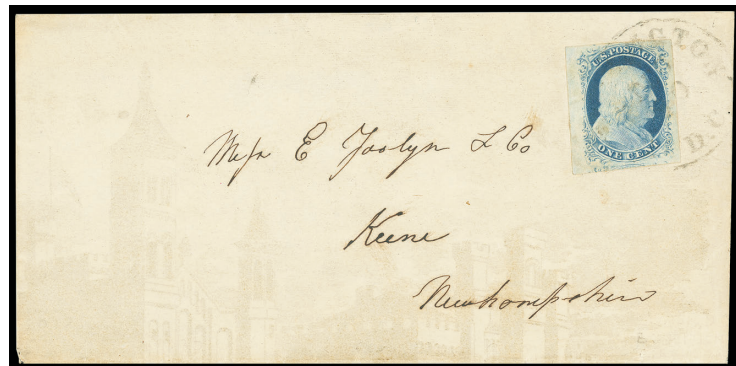 U.S. POSTAGE
ONE CENT
GTON
D.C
Mess E Joslyn & Co
Keene
Newhampshire